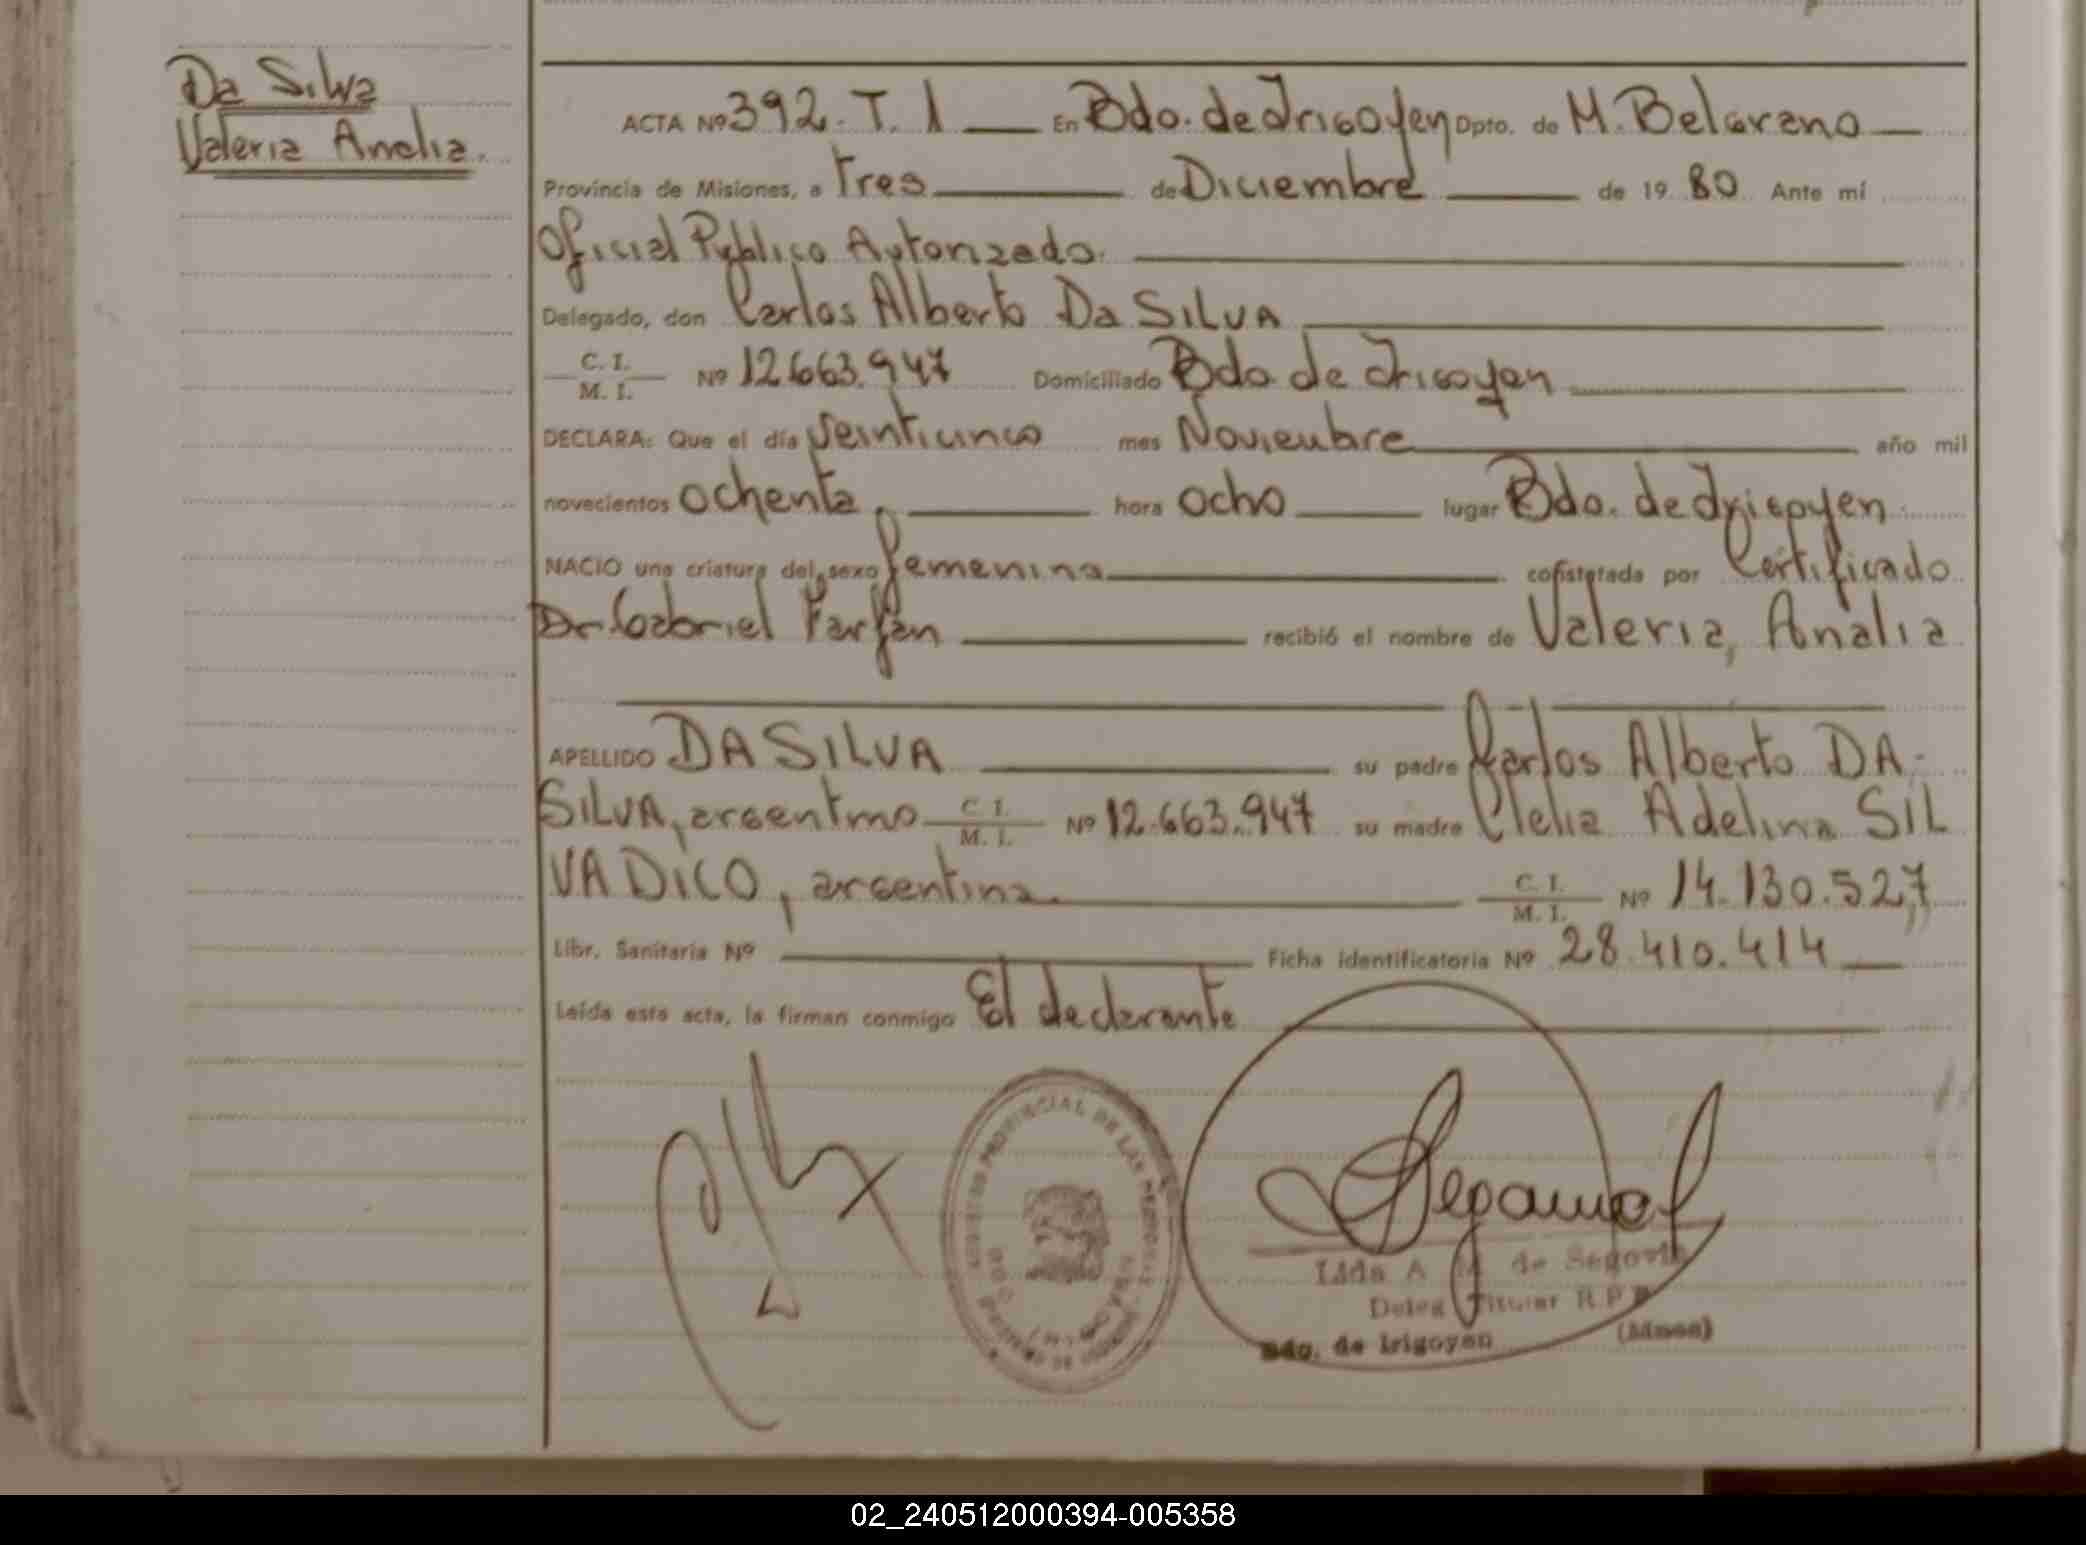 Da Silva
Valeria Analia.
ACTA Nº 392. T. 1 En Bdo. de Irigoyen Dpto. de M. Belgrano
Provincia de Misiones, a tres de Diciembre de 19 80 Ante mí
Oficial Publico Autorizado.
Delegado, don Carlos Alberto Da SILVA
C. I.
M. I. Nº 12.663.947 Domiciliado Bdo de Irigoyen
DECLARA: Que el día veinticinco mes Noviembre año mil
novecientos ochenta, hora ocho lugar Bdo. de Irigoyen
NACIO una criatura del sexo femenina constatada por Certificado
Dr Gabriel Farfan recibió el nombre de Valeria, Analia
APELLIDO DA SILVA su padre Carlos Alberto DA-
SILVA, argentino C. I.
M. I. Nº 12.663.947 su madre Clelia Adelina SIL
VA DICO, argentina. C. I.
M. I. Nº 14.130.527
Libr. Sanitaria Nº Ficha identificatoria Nº 28.410.414
Leída esta acta, la firman conmigo El declarante
PROVINCIAL DE LAS PERSONAS
Lida A de Segovia
Deleg Titular R.P.P
Bdo. de Irigoyen (Mnes)
02_240512000394-005358